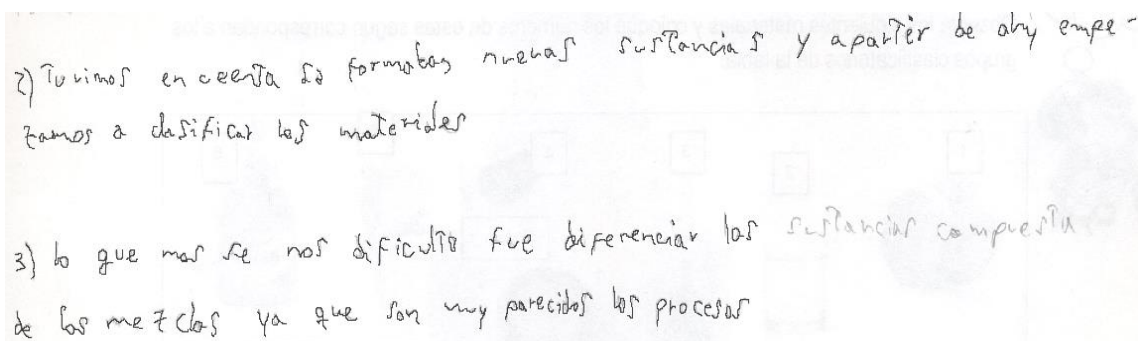 2) Tuvimos en ceenta si formaban nuevas sustancias y apartir de ahy empe-
zamos a clasificar los materiales
3) lo que mas se nos dificulto fue diferenciar las sustancias compuesta
de las mezclas ya que son muy parecidos los procesos